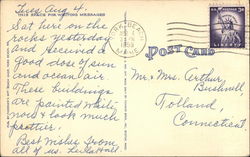 Tues Aug 4.
THIS SPACE FOR WRITING MESSAGES
Sat here on the
rocks yesterday
and received a
good dose of sun
and ocean air.
These buildings
are painted white
now & look much
prettier.
Best wishes from
all of us.
POST CARD
Mr. & Mrs. Arthur
Bushnell,
Tolland,
Connecticut.